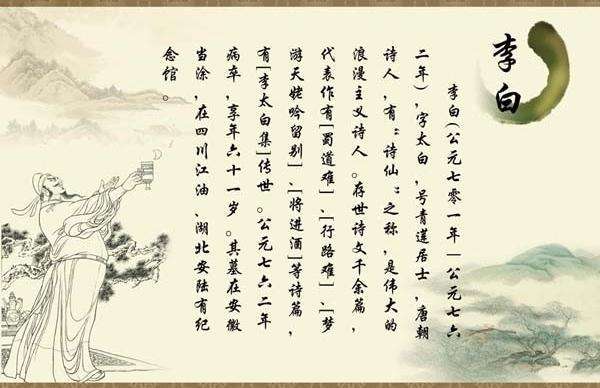 李白
李白(公元七零一年|公元七六
二年),字太白,号青莲居士,唐朝
诗人,有“诗仙”之称,是伟大的
浪漫主义诗人。存世诗文千余篇,
代表作有[蜀道难]、[行路难]、[梦
游天姥吟留别]、[将进酒]等诗篇,
有[李太白集]传世。公元七六二年
病卒,享年六十一岁。其墓在安徽
当涂,在四川江油、湖北安陆有纪
念馆。